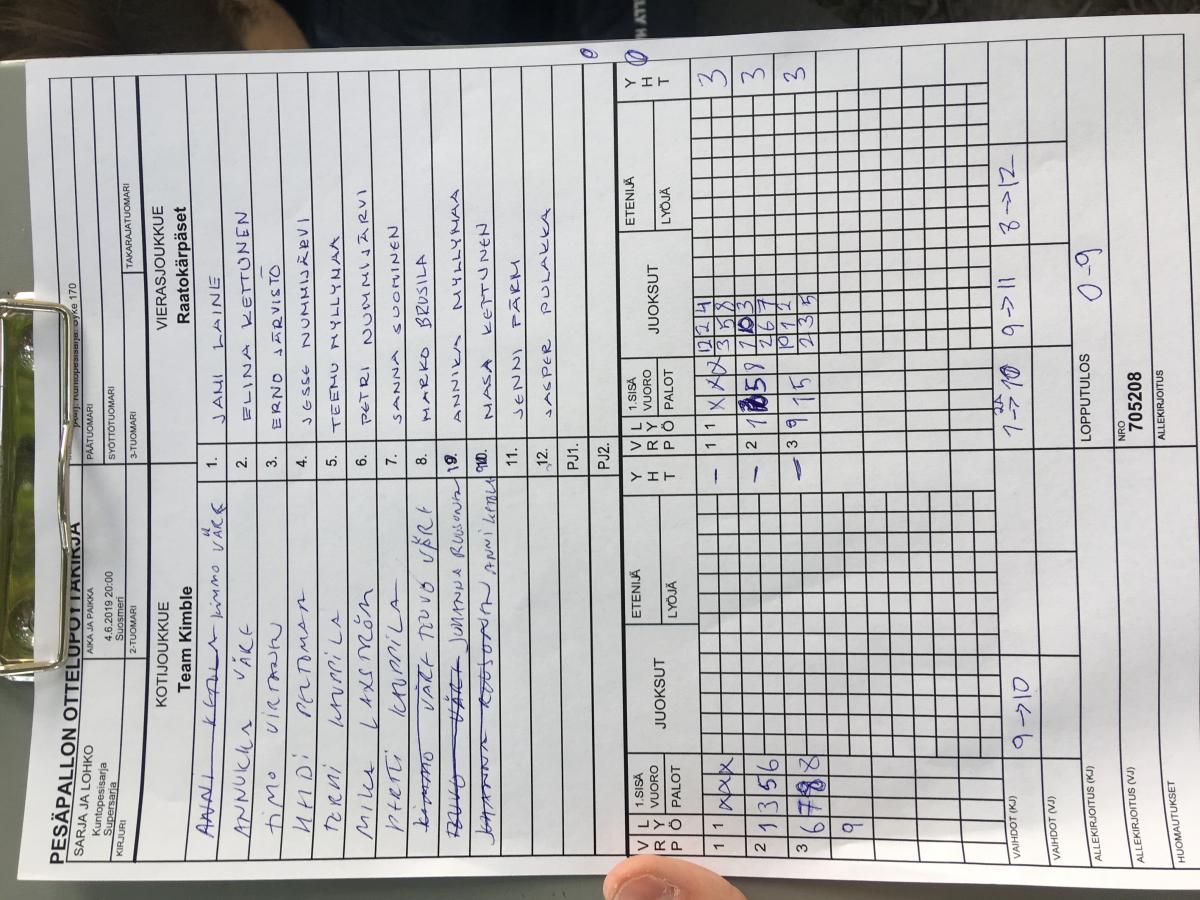 PESÄPALLON OTTELUPÖYTÄKIRJA
SARJA JA LOHKO
Kuntopesisarja
Supersarja
AIKA JA PAIKKA
4.6.2019 20:00
Suosmeri
PÄÄTUOMARI
SYÖTTÖTUOMARI
KIRJURI
2-TUOMARI
3-TUOMARI
TAKARAJATUOMARI
KOTIJOUKKUE
Team Kimble
VIERASJOUKKUE
Raatokärpäset
KIMMO VÄRE 1. JAMI LAINE
ANNUKKA VÄRE 2. ELINA KETTUNEN
TIMO VIRTANEN 3. ERNO JÄRVISTÖ
HEIDI PELTOMAA 4. JESSE NUMMIJÄRVI
TERHI KAUPPILA 5. TEEMU MYLLYMAA
MIKA LAXSTRÖM 6. PETRI NUMMIJÄRVI
PERTTI KAUPPILA 7. SANNA SUOMINEN
KIMMO VÄRE TOUVO VÄRE 8. MARKO BRUSILA
TOUVO VÄRE JOHANNA RUUSONEN 9. ANNIKA MYLLYMAA
JOHANNA RUUSONEN ANNI 10. MASA KETTUNEN
11. JENNI PÄRM
12. JASPER PULAKKA
PJ1.
PJ2.
0
V R P L Y Ö 1.SISÄ VUORO PALOT JUOKSUT ETENIJÄ LYÖJÄ Y H T
V R P L Y Ö 1.SISÄ VUORO PALOT JUOKSUT ETENIJÄ LYÖJÄ Y H T 0
1 1 X X X – 1 1 X X X 12 2 4 3
3 5 8
2 1 3 5 6 – 2 1 5 3 3
2 6 7
3 6 7 8 – 3 9 1 5 1 2 3
2 3 5
9
VAIHDOT (KJ) 9→10 1→10 9→11 8→12
VAIHDOT (VJ)
ALLEKIRJOITUS (KJ) LOPPUTULOS 0-9
ALLEKIRJOITUS (VJ) NRO 705208
HUOMAUTUKSET ALLEKIRJOITUS